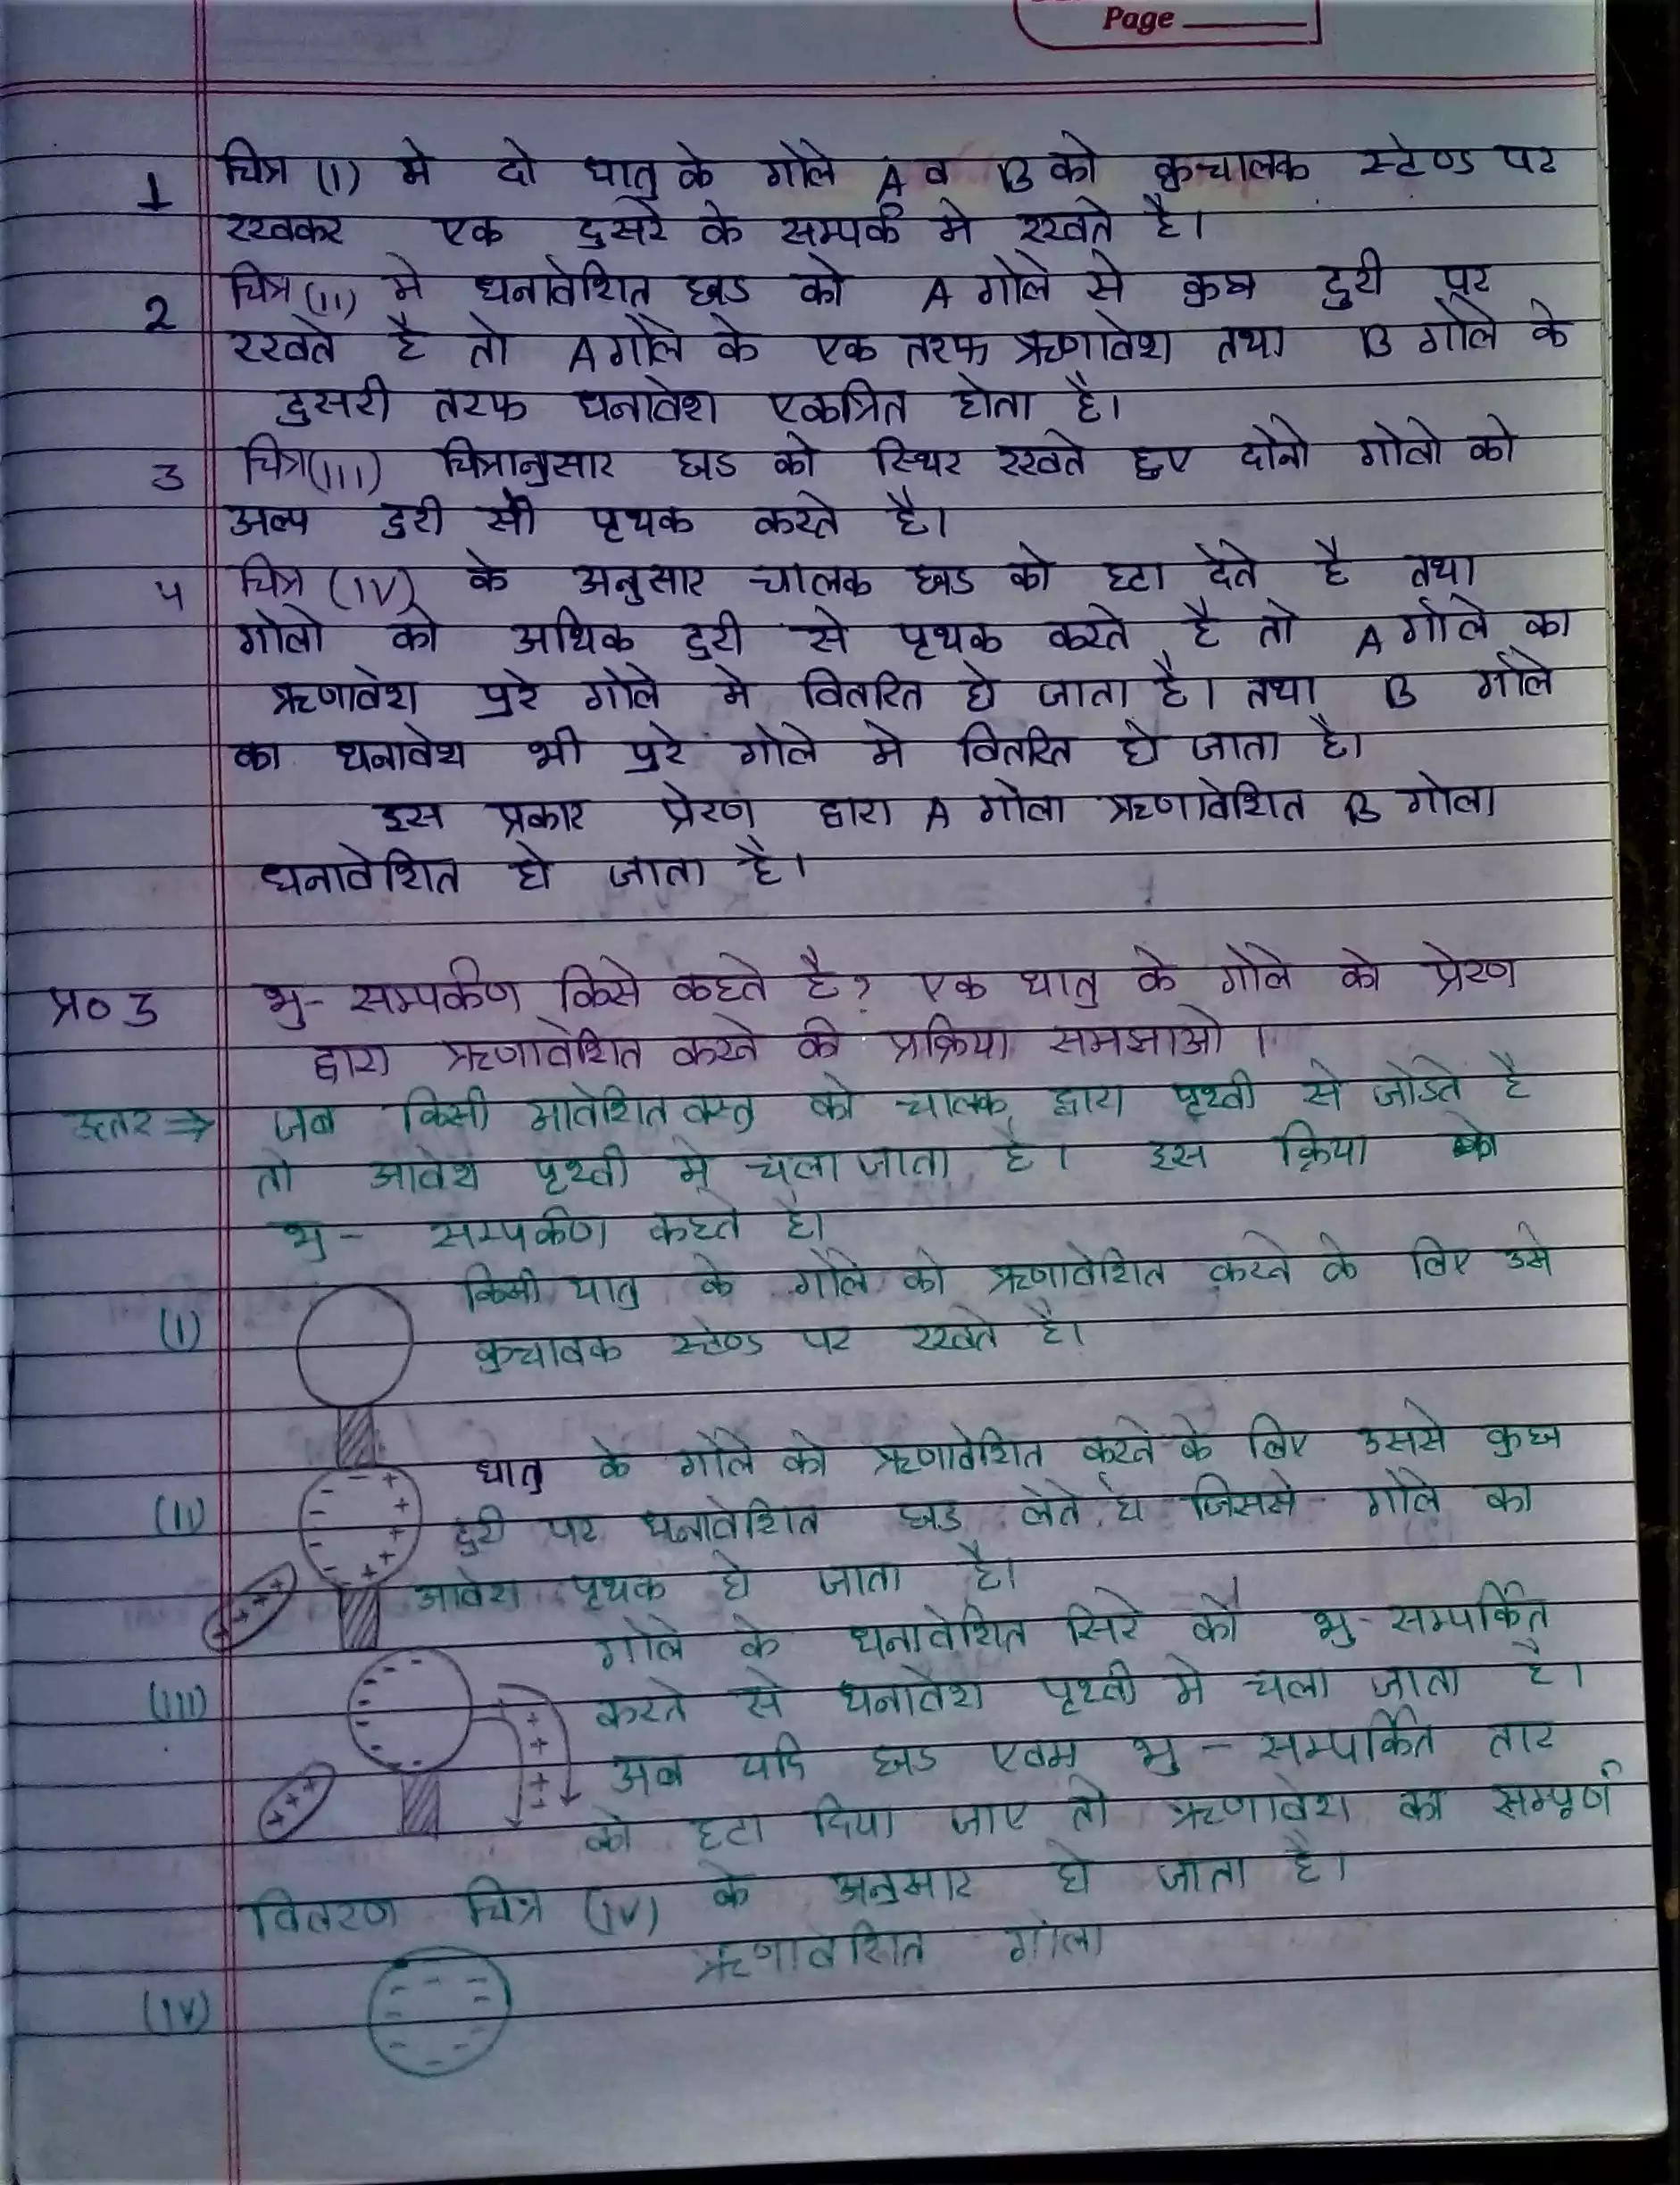 Page
1 चित्र (I) मे दो धातु के गोले A व B को कुचालक स्टेण्ड पर
रखकर एक दुसरे के सम्पर्क मे रखते है।
2 चित्र (II) मे धनावेशित छड को A गोले से कुछ दुरी पर
रखते है तो A गोले के एक तरफ ऋणावेश तथा B गोले के
दुसरी तरफ धनावेश एकत्रित होता है।
3 चित्र(III) चित्रानुसार छड को स्थिर रखते हुए दोनो गोलो को
अल्प दुरी से पृथक करते है।
4 चित्र (IV) के अनुसार चालक छड को हटा देते है तथा
गोलो को अधिक दुरी से पृथक करते है तो A गोले का
ऋणावेश पुरे गोले मे वितरित हो जाता है। तथा B गोले
का धनावेश भी पुरे गोले मे वितरित हो जाता है।
इस प्रकार प्रेरण द्वारा A गोला ऋणावेशित B गोला
धनावेशित हो जाता है।
प्र० 3 भु- सम्पर्कण किसे कहते है? एक धातु के गोले को प्रेरण
द्वारा ऋणावेशित करने की प्रक्रिया समझाओ।
उत्तर ⇒ जब किसी आवेशित वस्तु को चालक द्वारा पृथ्वी से जोडते है
तो आवेश पृथ्वी मे चला जाता है। इस क्रिया को
भु- सम्पर्कण कहते है।
(I) किसी धातु के गोले को ऋणावेशित करने के लिए उसे
कुचालक स्टेण्ड पर रखते है।
धातु के गोले को ऋणावेशित करने के लिए उससे कुछ
(II) दुरी पर धनावेशित छड लेते है जिससे गोले का
आवेश पृथक हो जाता है।
गोले के धनावेशित सिरे को भु-सम्पर्कित
(III) करने से धनावेश पृथ्वी मे चला जाता है।
अब यदि छड एवम भु-सम्पर्कित तार
को हटा दिया जाए तो ऋणावेश का सम्पूर्ण
वितरण चित्र (IV) के अनुसार हो जाता है।
ऋणावेशित गोला
(IV)